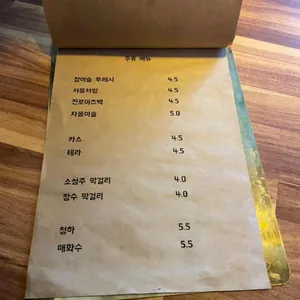 주류 메뉴
참이슬 후레시 4.5
처음처럼 4.5
진로이즈백 4.5
자몽이슬 5.0
카스 4.5
테라 4.5
소성주 막걸리 4.0
장수 막걸리 4.0
청하 5.5
매화수 5.5